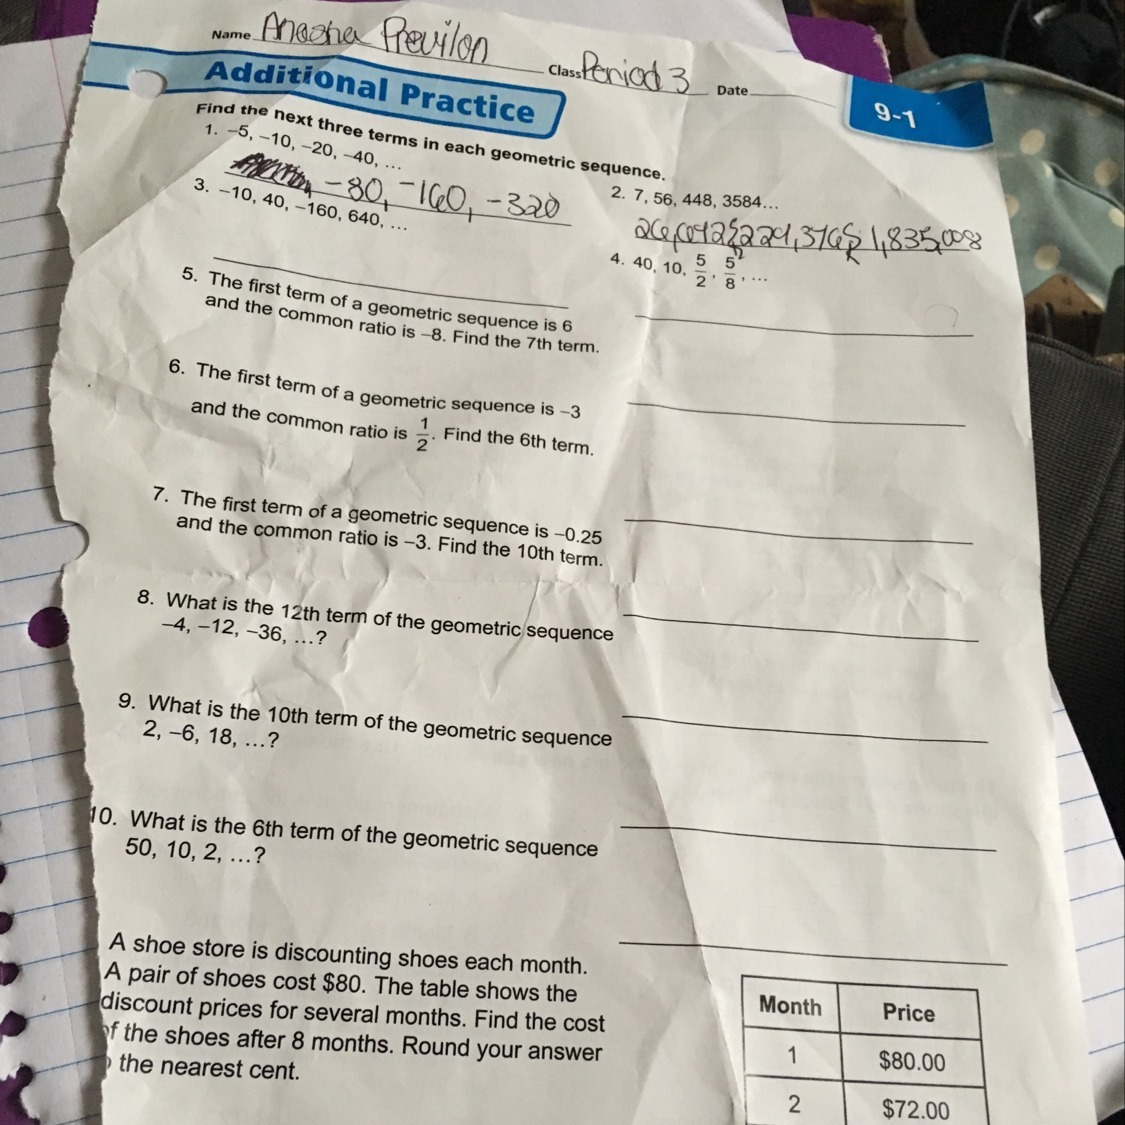 Name Anaosha Previlon Class Period 3 Date
Additional Practice
9-1
Find the next three terms in each geometric sequence.
1. –5, –10, –20, –40, …
-80, -160, -320
2. 7, 56, 448, 3584…
229,376 1,835,008
3. –10, 40, –160, 640, …
4. 40, 10, 5/2, 5/8, …
5. The first term of a geometric sequence is 6
and the common ratio is –8. Find the 7th term.
6. The first term of a geometric sequence is –3
and the common ratio is 1/2. Find the 6th term.
7. The first term of a geometric sequence is –0.25
and the common ratio is –3. Find the 10th term.
8. What is the 12th term of the geometric sequence
–4, –12, –36, …?
9. What is the 10th term of the geometric sequence
2, –6, 18, …?
10. What is the 6th term of the geometric sequence
50, 10, 2, …?
A shoe store is discounting shoes each month.
A pair of shoes cost $80. The table shows the
discount prices for several months. Find the cost
of the shoes after 8 months. Round your answer
the nearest cent.
Month Price
1 $80.00
2 $72.00